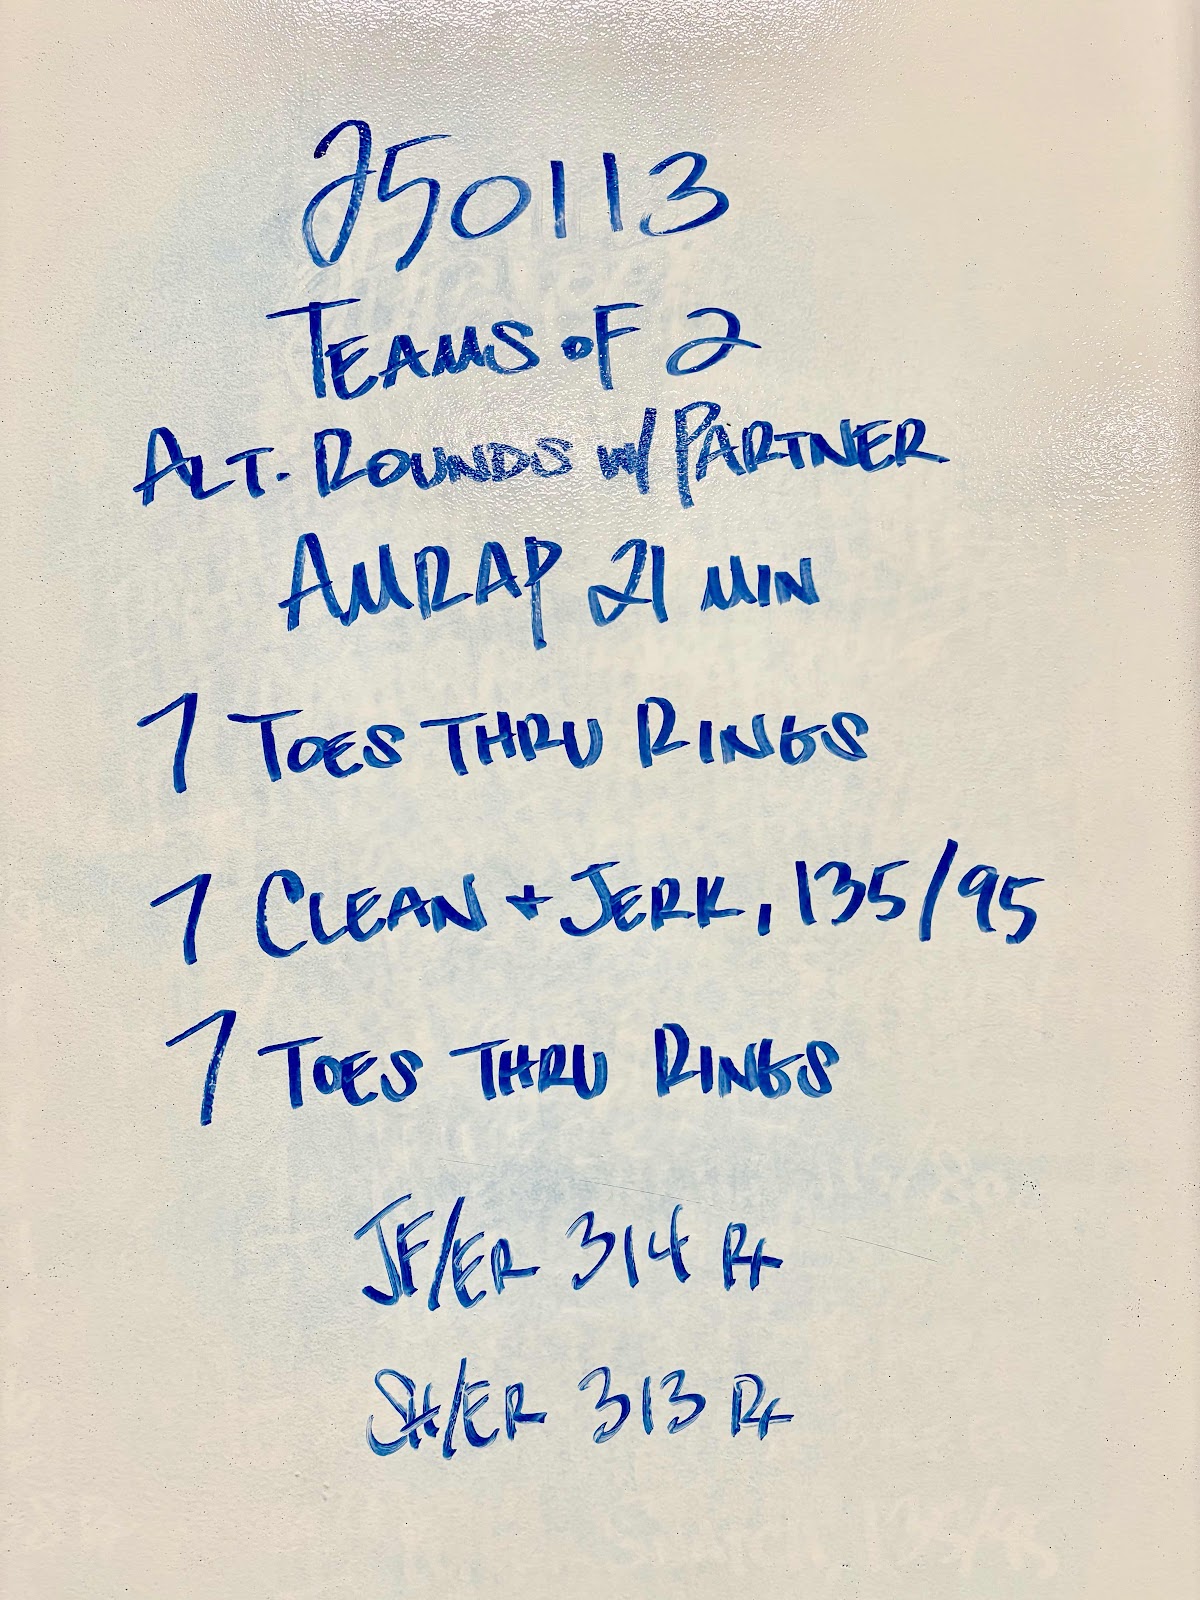 250113
TEAMS OF 2
ALT. ROUNDS W/ PARTNER
AMRAP 21 MIN
7 TOES THRU RINGS
7 CLEAN + JERK, 135/95
7 TOES THRU RINGS
JF/ER 314 Rx
SH/ER 313 Rx